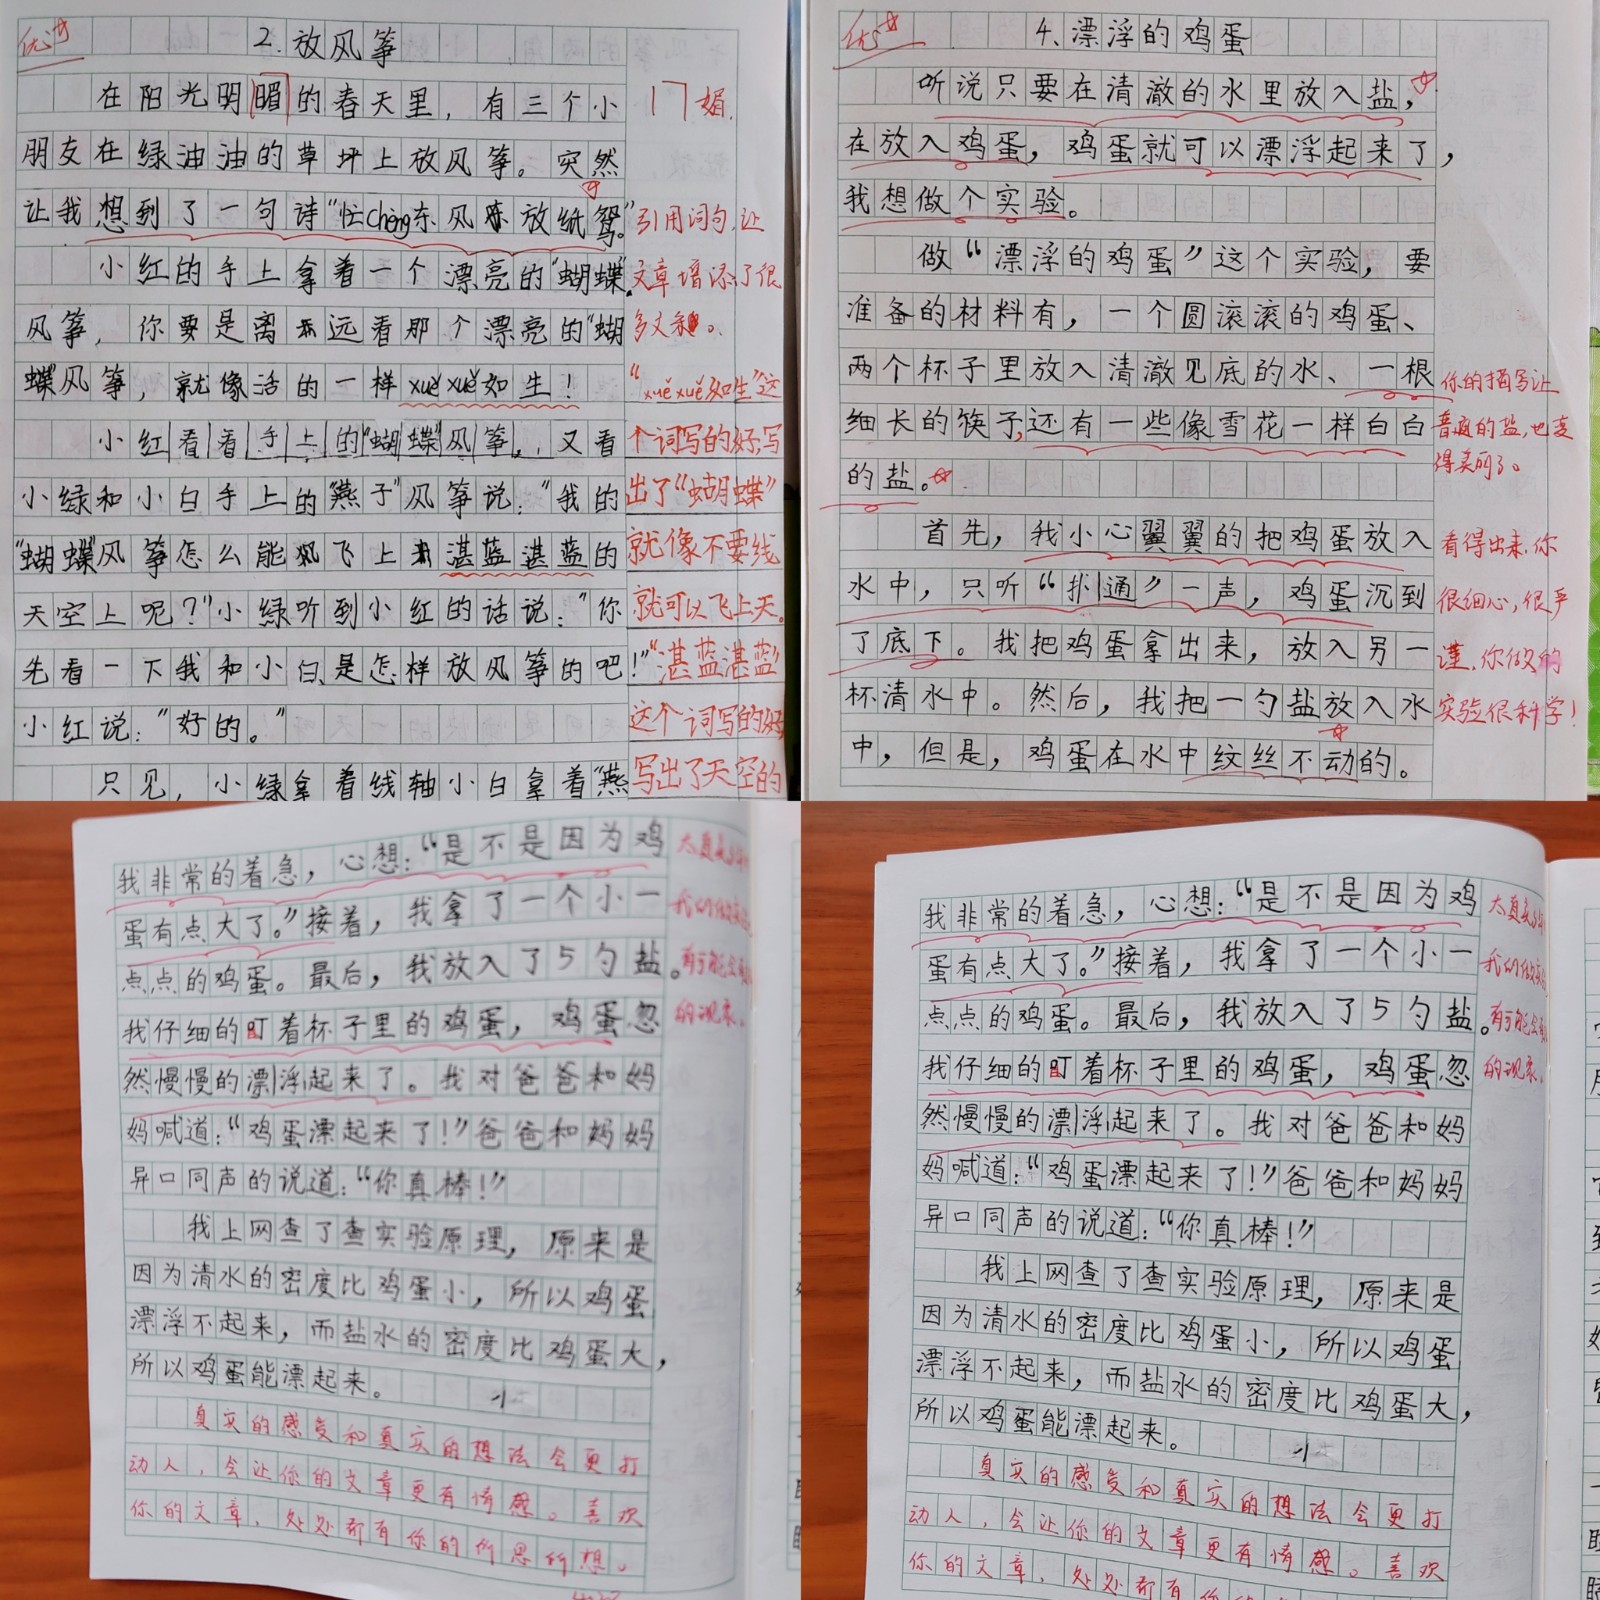 优
2.放风筝
在阳光明媚的春天里，有三个小
朋友在绿油油的草坪上放风筝。突然
让我想到了一句诗“忙chèng东风放纸鸳。”
小红的手上拿着一个漂亮的“蝴蝶”
风筝，你要是离远看那个漂亮的“蝴
蝶”风筝，就像活的一样xuěxuě如生！
小红看看手上的“蝴蝶”风筝，又看
小绿和小白手上的“燕子”风筝说：“我的
“蝴蝶”风筝怎么能飞上湛蓝湛蓝的
天空上呢？”小绿听到小红的话说：“你
先看一下我和小白是怎样放风筝的吧！”
小红说：“好的。”
只见，小绿拿着线轴小白拿着“燕
媚.
引用词句,让
文章增添了很
多文采。
“xuěxuě如生”这
个词写的好,写
出了“蝴蝶”
就像不要线
就可以飞上天。
“湛蓝湛蓝”
这个词写的好
写出了天空的
优
4、漂浮的鸡蛋
听说只要在清澈的水里放入盐，
在放入鸡蛋，鸡蛋就可以漂浮起来了，
我想做个实验。
做“漂浮的鸡蛋”这个实验，要
准备的材料有，一个圆滚滚的鸡蛋、
两个杯子里放入清澈见底的水、一根
细长的筷子,还有一些像雪花一样白白
的盐。
首先，我小心翼翼的把鸡蛋放入
水中，只听“扑通”一声，鸡蛋沉到
了底下。我把鸡蛋拿出来，放入另一
杯清水中。然后，我把一勺盐放入水
中，但是，鸡蛋在水中纹丝不动的。
你的描写让
普通的盐,也变
得美丽了。
看得出来,你
很细心,很严
谨,你做的
实验很科学！
我非常的着急，心想：“是不是因为鸡
蛋有点大了。”接着，我拿了一个小一
点点的鸡蛋。最后，我放入了5勺盐。
我仔细的盯着杯子里的鸡蛋，鸡蛋忽
然慢慢的漂浮起来了。我对爸爸和妈
妈喊道：“鸡蛋漂起来了！”爸爸和妈妈
异口同声的说道：“你真棒！”
我上网查了查实验原理，原来是
因为清水的密度比鸡蛋小，所以鸡蛋
漂浮不起来，而盐水的密度比鸡蛋大，
所以鸡蛋能漂起来。
真实的感受和真实的想法会更打
动人，会让你的文章更有情感。喜欢
你的文章，处处都有你的所思所想。
的现象。
我非常的着急，心想：“是不是因为鸡
蛋有点大了。”接着，我拿了一个小一
点点的鸡蛋。最后，我放入了5勺盐。
我仔细的盯着杯子里的鸡蛋，鸡蛋忽
然慢慢的漂浮起来了。我对爸爸和妈
妈喊道：“鸡蛋漂起来了！”爸爸和妈妈
异口同声的说道：“你真棒！”
我上网查了查实验原理，原来是
因为清水的密度比鸡蛋小，所以鸡蛋
漂浮不起来，而盐水的密度比鸡蛋大，
所以鸡蛋能漂起来。
真实的感受和真实的想法会更打
动人，会让你的文章更有情感。喜欢
你的文章，处处都有你的
的现象。